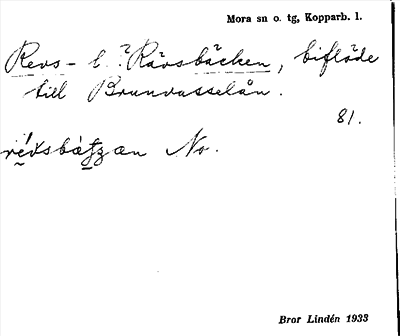 Mora sn o. tg, Kopparb. l.
Revs- l. ?Rävsbäcken, biflöde
till Brunvasselån.
81.
No.
Bror Lindén 1933